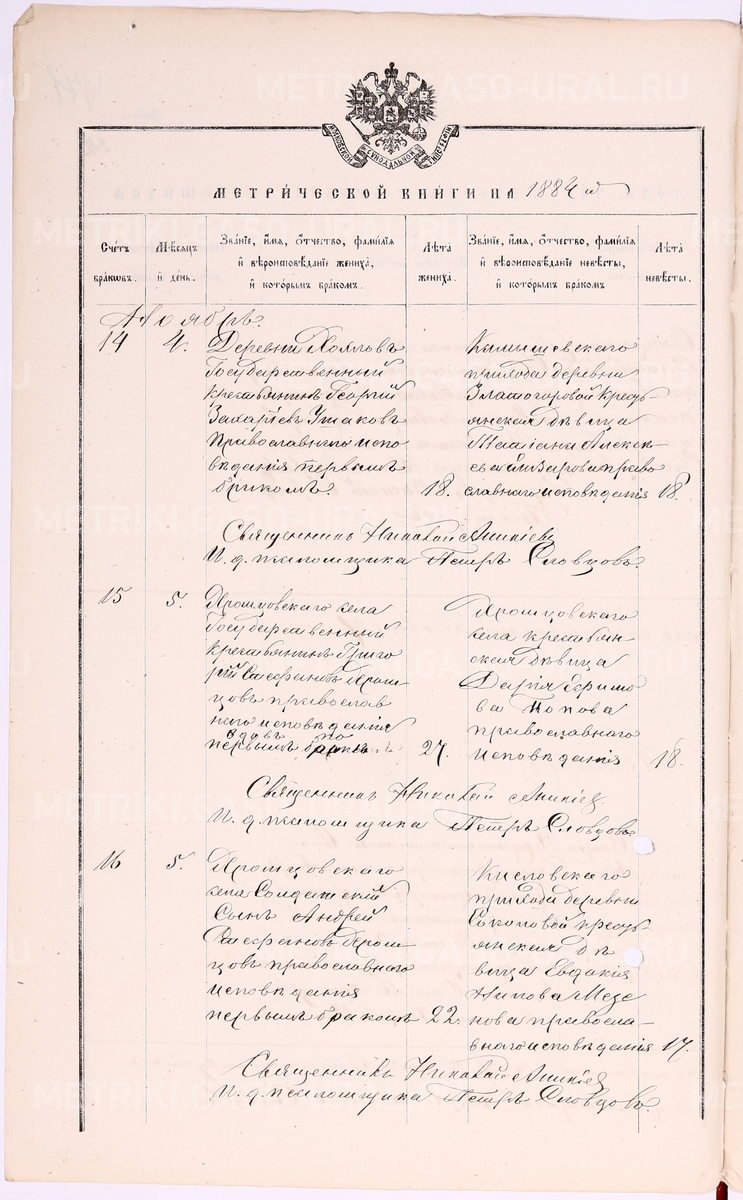 METRIKI.GASO-URAL.RU
МЕТРИЧЕСКОЙ КНИГИ НА 1884 й
Счетъ браковъ.
Мѣсяцъ и день.
Званіе, имя, отчество, фамилія и вѣроисповѣданіе жениха, и которымъ бракомъ.
Лѣта жениха.
Званіе, имя, отчество, фамилія и вѣроисповѣданіе невѣсты, и которымъ бракомъ
Лѣта невѣсты.
Ноябрь.
14
4.
Деревни
Государственный
крестьянинъ Георгій
Захаріевъ Ушаковъ
православнаго испо
вѣданія первымъ
бракомъ.
18.
Камышевскаго
прихода деревни
Златогоровой кресть
янская дѣвица
Татіана Алексѣ
ева правo
славнаго исповѣданія
18.
Священникъ Николай Аникіев
И. д. псаломщика Петръ Словцовъ.
15
5.
села
Государственный
крестьянинъ Григо
рій
цовъ православ
наго исповѣданія
вдовъ по
первымъ бракѣ
27.
села крестьян
ская дѣвица
Дарія Ефимо
ва Попова
православнаго
исповѣданія
18.
Священникъ Николай Аникіев
И. д. псаломщика Петръ Словцовъ
16
5.
села Солдатскій
сынъ Андрей
цовъ православнаго
исповѣданія
первымъ бракомъ
22.
Кисловскаго
прихода деревни
Соколовой кресть
янская дѣ
вица Евдокія
нова правосла
внаго исповѣданія
17.
Священникъ Николай Аникіев
И. д. псаломщика Петръ Словцовъ.